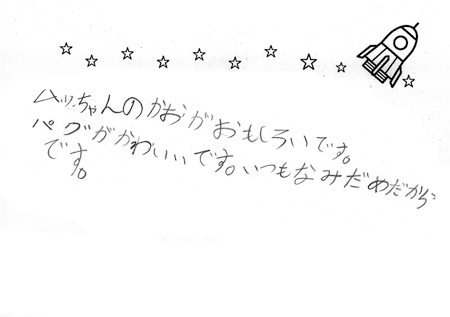 ムッちゃんのかおがおもしろいです。
パグがかわいいです。いつもなみだめだから
です。